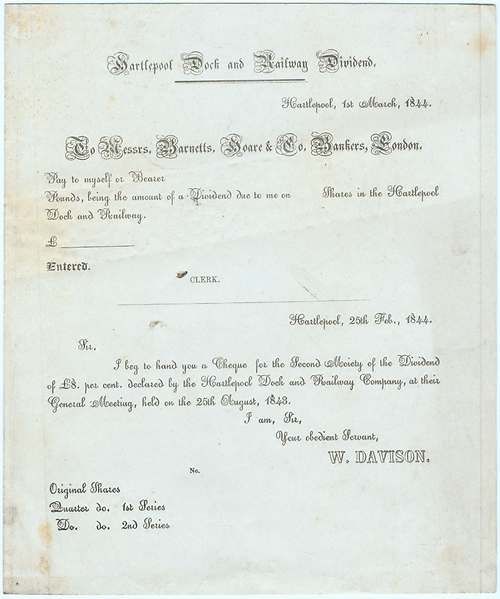 Hartlepool Dock and Railway Dividend.
Hartlepool, 1st March, 1844.
To Messrs. Barnetts, Hoare & Co. Bankers, London.
Pay to myself or Bearer
Pounds, being the amount of a Dividend due to me on Shares in the Hartlepool
Dock and Railway.
£
Entered.
CLERK.
Hartlepool, 25th Feb., 1844.
Sir,
I beg to hand you a Cheque for the Second Moiety of the Dividend
of £8. per cent. declared by the Hartlepool Dock and Railway Company, at their
General Meeting, held on the 25th August, 1843.
I am, Sir,
Your obedient Servant,
W. DAVISON.
No.
Original Shares
Quarter do. 1st Series
Do. do. 2nd Series